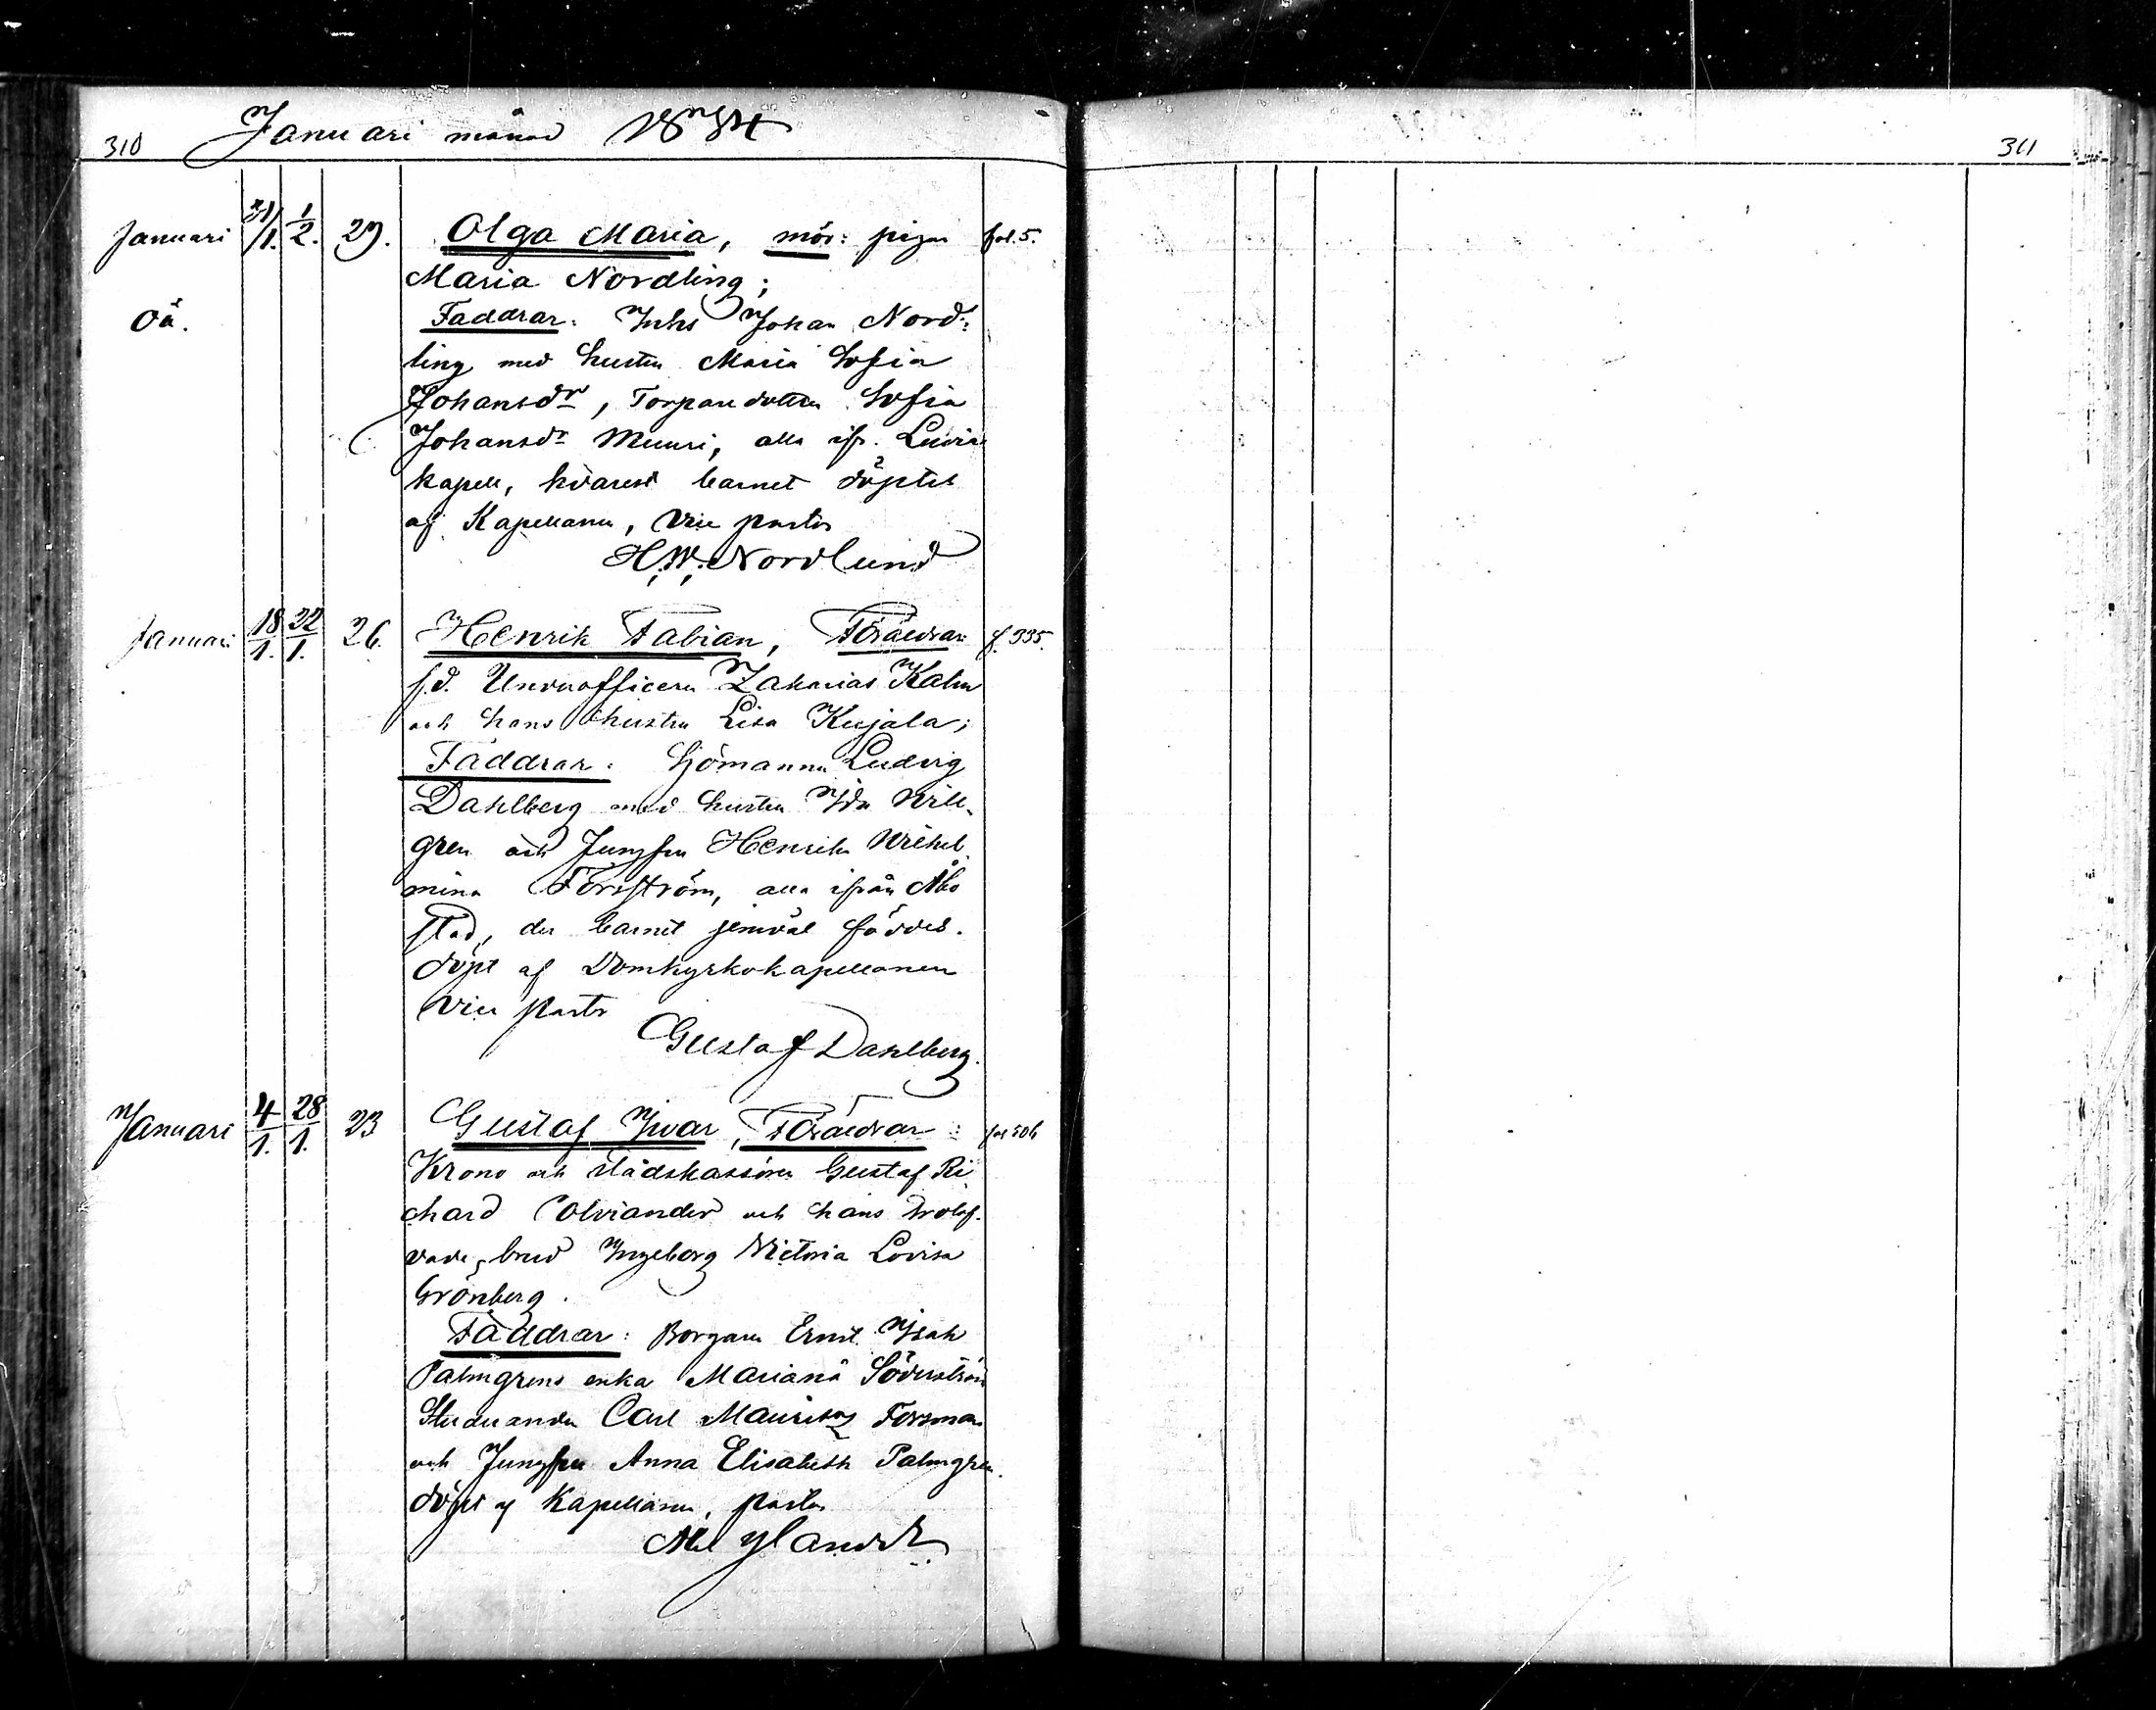 310 Januari månad 1884
311
Januari 31/1. 1/2. 29. Olga Maria, mor: pigan fol. 5.
Maria Nordling;
Oä. Faddrar: Inhs Johan Nord-
ling med hustru Maria Sofia
Johansdr, Torparedottern Sofia
Johansdr Muuri, alla ifr.
kapell, hvarest barnet döptes
af Kapellanen, Vice pastor
H.W. Nordlund
Januari 18/1. 22/1. 26. Henrik Fabian, Föräldrar: f. 335.
f.d. Underofficeren Zakarias Kalm
och hans hustru Lisa Kujala;
Faddrar: Sjömannen Ludvig
Dahlberg med hustru Ida Will-
gren och Jungfru Henrika Wilhel-
mina Forsström, alla ifrån Åbo
stad, der barnet jemväl föddes.
döpt af Domkyrkokapellanen
Vice pastor
Gustaf Dahlberg.
Januari 4/1. 28/1. 23 Gustaf Ivar, Föräldrar: fol 506
Krono och Stadskassören Gustaf Ri
chard Colviander och hans trolof-
vade brud Ingeborg Victoria Lovisa
Grönberg.
Faddrar: Borgaren Ernst Isak
Palmgrens enka Mariana Söderström
Studeranden Carl Mauritz Forsman
och Jungfru Anna Elisabeth Palmgren.
döpt af Kapellanen, pastor